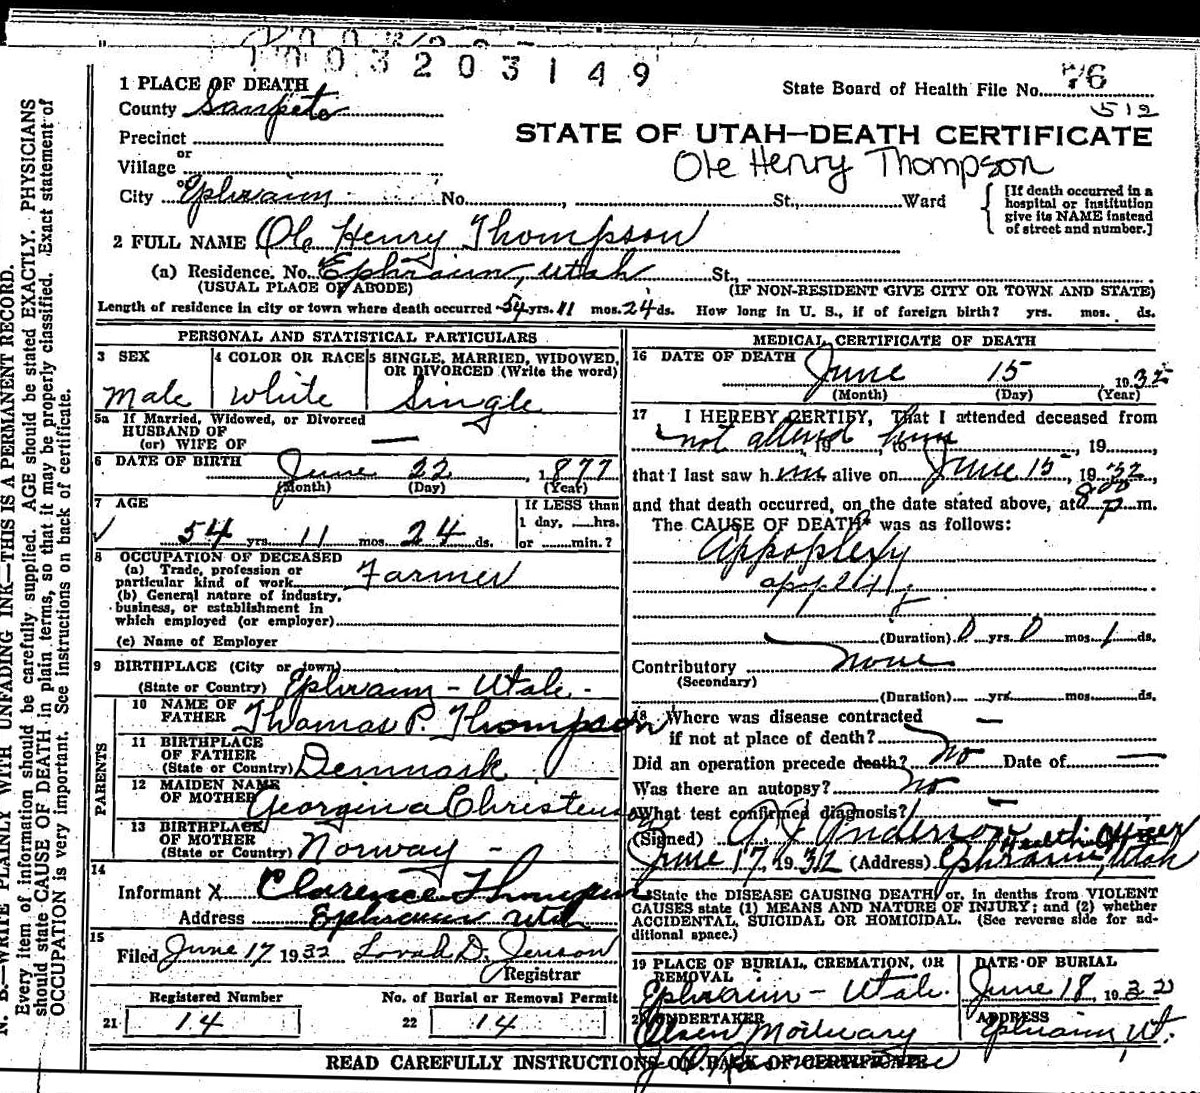 1003203149
1 PLACE OF DEATH
State Board of Health File No. 76
County Sanpete
512
Precinct
STATE OF UTAH—DEATH CERTIFICATE
or
Village
Ole Henry Thompson
or
City Ephraim No. , St., Ward
[If death occurred in a hospital or institution give its NAME instead of street and number.]
2 FULL NAME Ole Henry Thompson
(a) Residence. No. Ephraim, Utah St.,
(USUAL PLACE OF ABODE) (IF NON-RESIDENT GIVE CITY OR TOWN AND STATE)
Length of residence in city or town where death occurred 54 yrs. 11 mos. 24 ds. How long in U. S., if of foreign birth? yrs. mos. ds.
PERSONAL AND STATISTICAL PARTICULARS
3 SEX 4 COLOR OR RACE 5 SINGLE, MARRIED, WIDOWED, OR DIVORCED (Write the word)
Male White Single
5a If Married, Widowed, or Divorced
HUSBAND OF
(or) WIFE OF —
6 DATE OF BIRTH June 22, 1877
(Month) (Day) (Year)
7 AGE If LESS than
1 day, hrs.
54 yrs. 11 mos. 24 ds. or min.?
8 OCCUPATION OF DECEASED
(a) Trade, profession or
particular kind of work Farmer
(b) General nature of industry,
business, or establishment in
which employed (or employer)
(c) Name of Employer
9 BIRTHPLACE (City or town)
(State or Country) Ephraim - Utah.
PARENTS
10 NAME OF
FATHER Thomas P. Thompson
11 BIRTHPLACE
OF FATHER
(State or Country) Denmark
12 MAIDEN NAME
OF MOTHER Georgina Christensen
13 BIRTHPLACE
OF MOTHER
(State or Country) Norway -
14
Informant X Clarence Thompson
Address Ephraim Utah
15
Filed June 17 1932 Jenson
Registrar
Registered Number No. of Burial or Removal Permit
21 14 22 14
MEDICAL CERTIFICATE OF DEATH
16 DATE OF DEATH June 15, 1932
(Month) (Day) (Year)
17 I HEREBY CERTIFY, That I attended deceased from
not attend him , 19 , to , 19 ,
that I last saw him alive on June 15, 1932,
and that death occurred, on the date stated above, at 8:00 p m.
The CAUSE OF DEATH* was as follows:
Appoplexy
apoplexy
(Duration) 0 yrs. 0 mos. 1 ds.
Contributory none
(Secondary)
(Duration) yrs. mos. ds.
18 Where was disease contracted
if not at place of death? —
Did an operation precede death? No Date of —
Was there an autopsy? No
What test confirmed diagnosis? —
(Signed) Anderson Health Officer
June 17, 1932 (Address) Ephraim, Utah
*State the DISEASE CAUSING DEATH, or, in deaths from VIOLENT
CAUSES state (1) MEANS AND NATURE OF INJURY; and (2) whether
ACCIDENTAL, SUICIDAL OR HOMICIDAL. (See reverse side for ad-
ditional space.)
19 PLACE OF BURIAL, CREMATION, OR REMOVAL DATE OF BURIAL
Ephraim - Utah. June 18 1932
UNDERTAKER ADDRESS
Olsen Mortuary Ephraim, Ut.
READ CAREFULLY INSTRUCTIONS ON BACK OF CERTIFICATE
N. B.—WRITE PLAINLY WITH UNFADING INK—THIS IS A PERMANENT RECORD.
Every item of information should be carefully supplied. AGE should be stated EXACTLY. PHYSICIANS
should state CAUSE OF DEATH in plain terms, so that it may be properly classified. Exact statement of
OCCUPATION is very important. See instructions on back of certificate.